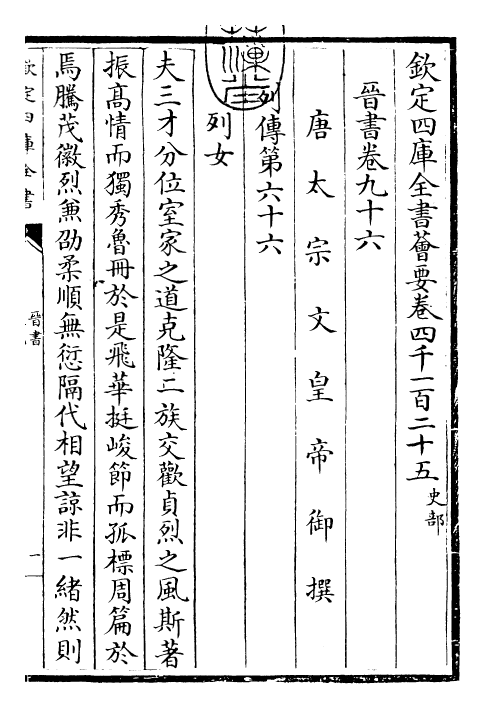 欽定四庫全書薈要卷四千一百二十五 史部
晉書卷九十六
唐太宗文皇帝御撰
列傳第六十六
列女
夫三才分位室家之道克隆二族交歡貞烈之風斯著
振高情而獨秀魯冊於是飛華挺峻節而孤標周篇於
焉騰茂徽烈兼劭柔順無愆隔代相望諒非一緒然則
欽定四庫全書
晉書
一